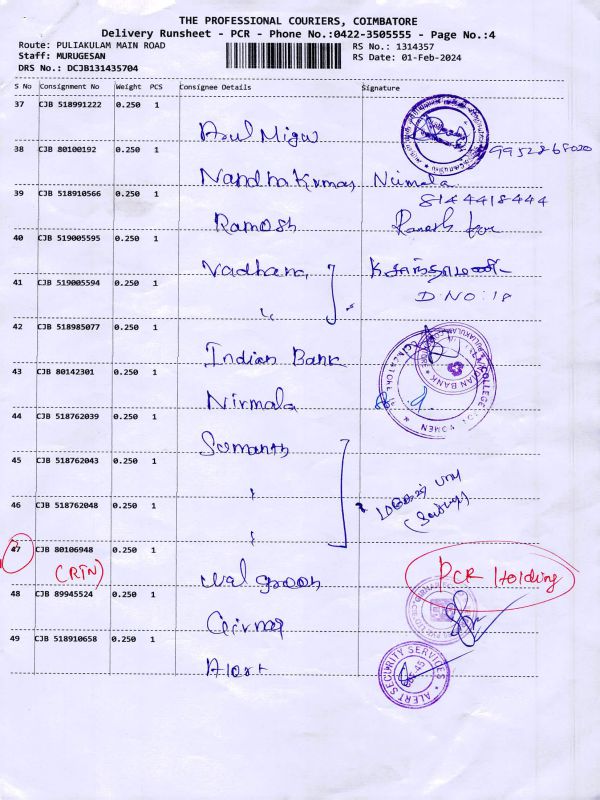 THE PROFESSIONAL COURIERS, COIMBATORE
Delivery Runsheet - PCR - Phone No.:0422-3505555 - Page No.:4
Route: PULIAKULAM MAIN ROAD
RS No.: 1314357
Staff: MURUGESAN
RS Date: 01-Feb-2024
DRS No.: DCJB131435704
S No Consignment No Weight PCS Consignee Details Signature
37 CJB 518991222 0.250 1
9952868020
38 CJB 80100192 0.250 1
Nandha Kumar Nirmala
8144418444
39 CJB 518910566 0.250 1
Ramesh Ramesh
40 CJB 519005595 0.250 1
Vadhana
D NO: 18
41 CJB 519005594 0.250 1
42 CJB 518985077 0.250 1
Indian Bank
43 CJB 80142301 0.250 1
Nirmala
44 CJB 518762039 0.250 1
Sumanth
45 CJB 518762043 0.250 1
46 CJB 518762048 0.250 1
47 CJB 80106948 0.250 1
(RTN) PCR Holding
48 CJB 89945524 0.250 1
49 CJB 518910658 0.250 1
Alert
ALERT SECURITY SERVICES